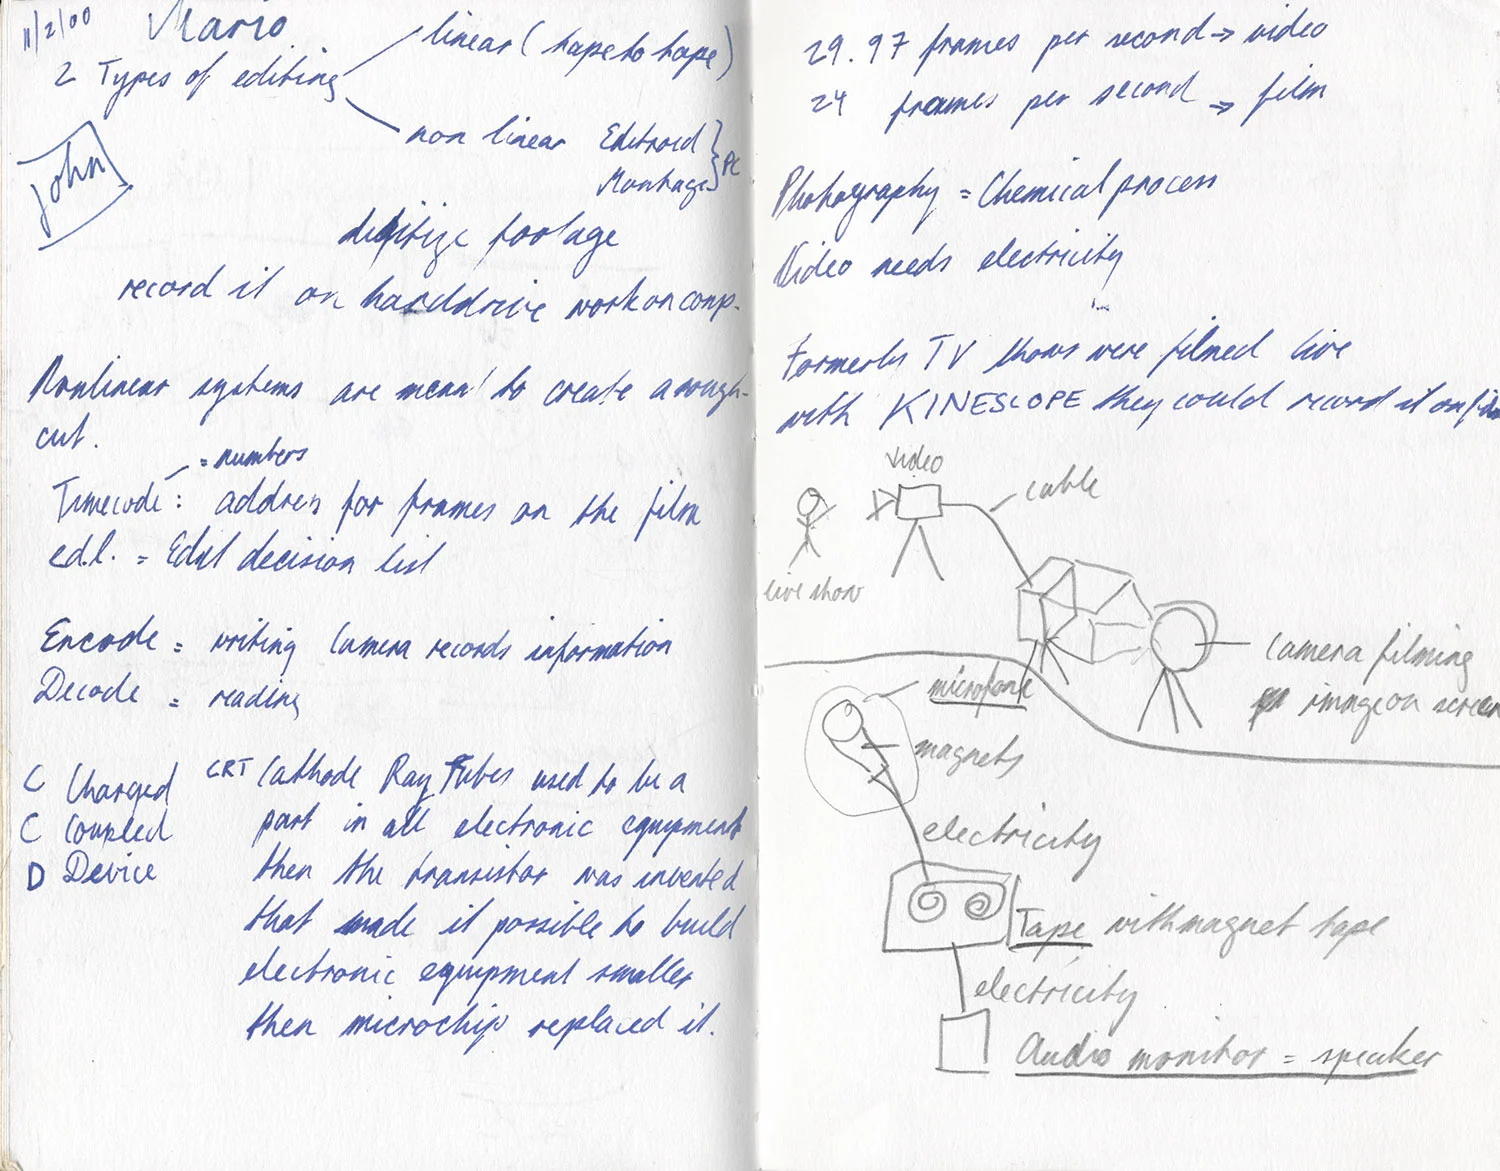 11/2/00 Mario
linear (tape to tape)
2 Types of editing
non linear Editroid
Montage } PC
John
digitize footage
record it on harddrive work on comp.
Nonlinear systems are meant to create a rough-
cut.
= numbers
Timecode: address for frames on the film
ed.l. = Edit decision list
Encode = writing Camera records information
Decode = reading
C Charged
C Coupled
D Device
CRT Cathode Ray Tubes used to be a
part in all electronic equipment
then the transistor was invented
that made it possible to build
electronic equipment smaller
then microchip replaced it.
29.97 frames per second → video
24 frames per second → film
Photography = Chemical process
Video needs electricity
Formerly TV shows were filmed live
with KINESCOPE they could record it on film
video
cable
live show
camera filming
image on screen
microfone
magnets
electricity
Tape with magnet tape
electricity
Audio monitor = speaker